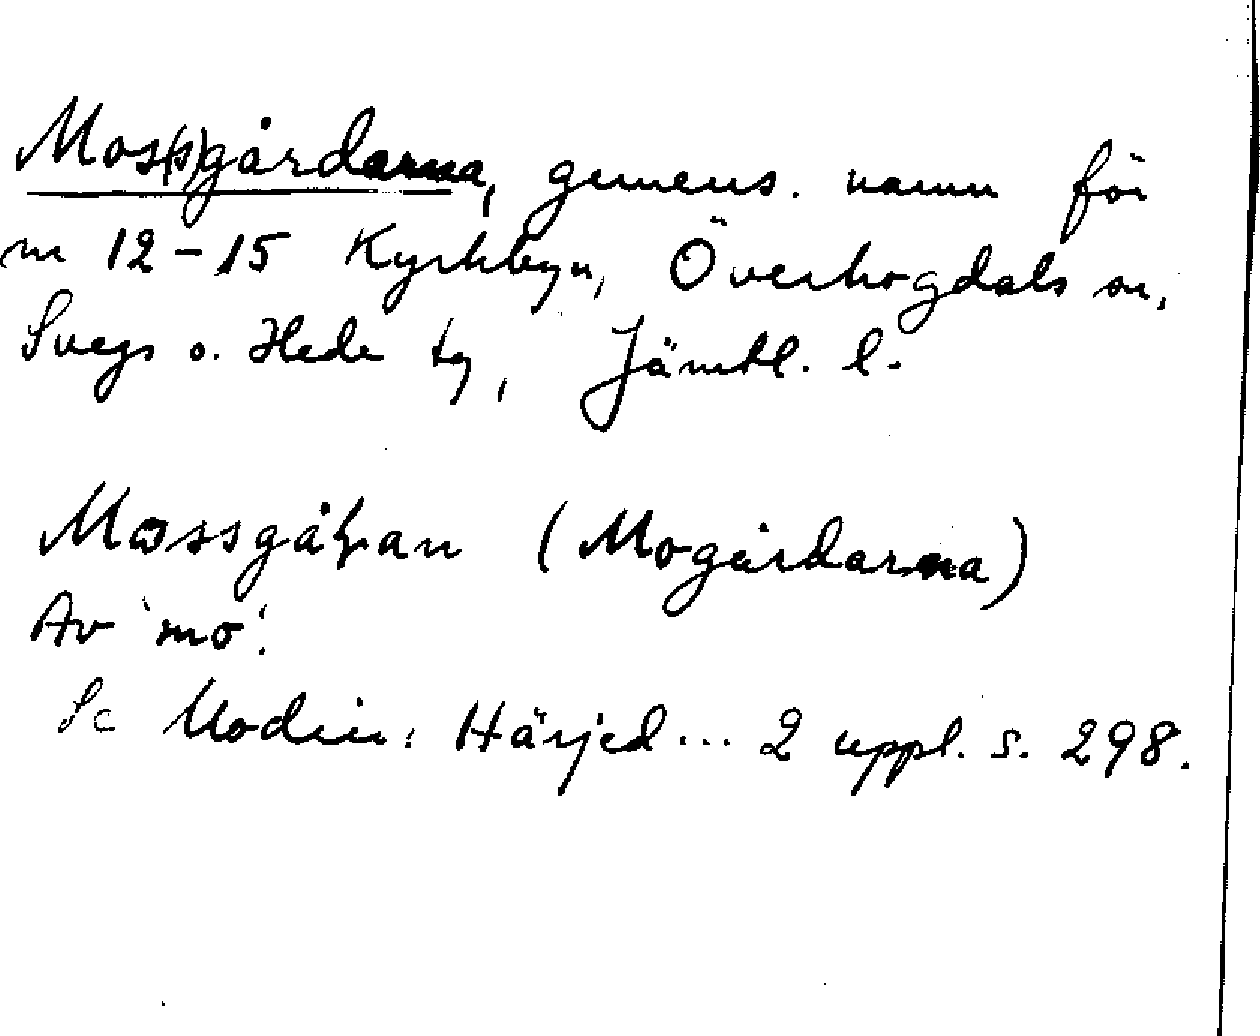 Mos(s)gårdarna, gemens. namn för
nr 12-15 Kyrkbyn, Överhogdals sn,
Svegs o. Hede tg, Jämtl. l.
Mossgåḷan (Mogårdarna)
Av 'mo'.
Se Modin: Härjed... 2 uppl. s. 298.